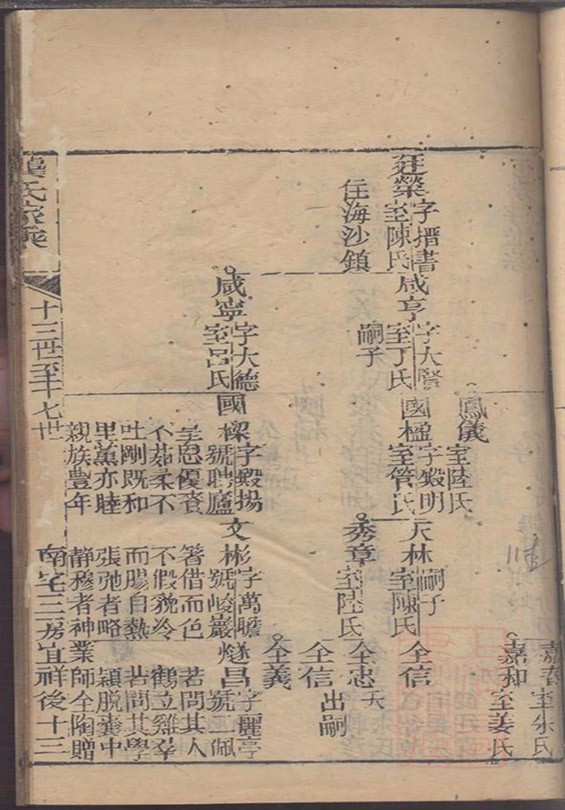 鳳儀
室陸氏
嘉春
室朱氏
嘉和
室姜氏
廷榮
字搢書
室陳氏
住海沙鎮
咸亨
字大賢
室丁氏
嗣子
國楹
字殿明
室管氏
天林
嗣子
室陳氏
全信
秀章
室陸氏
全忠
夭
全信
出嗣
全義
咸寧
字大德
室呂氏
國樑
字殿揚
號聘廬
文彬
字萬瞻
號峻巖
燧昌
字麗亭
號一佩
不茹柔不
吐剛既和
里黨亦睦
親族豐年
不假貌冷
而腸自熱
張弛者略
靜穆者神
若問其人
鶴立雞羣
若問其學
穎脫囊中
業師全陶贈
南宅三房宜祥後十三
龔氏家乘
十三世至十七世